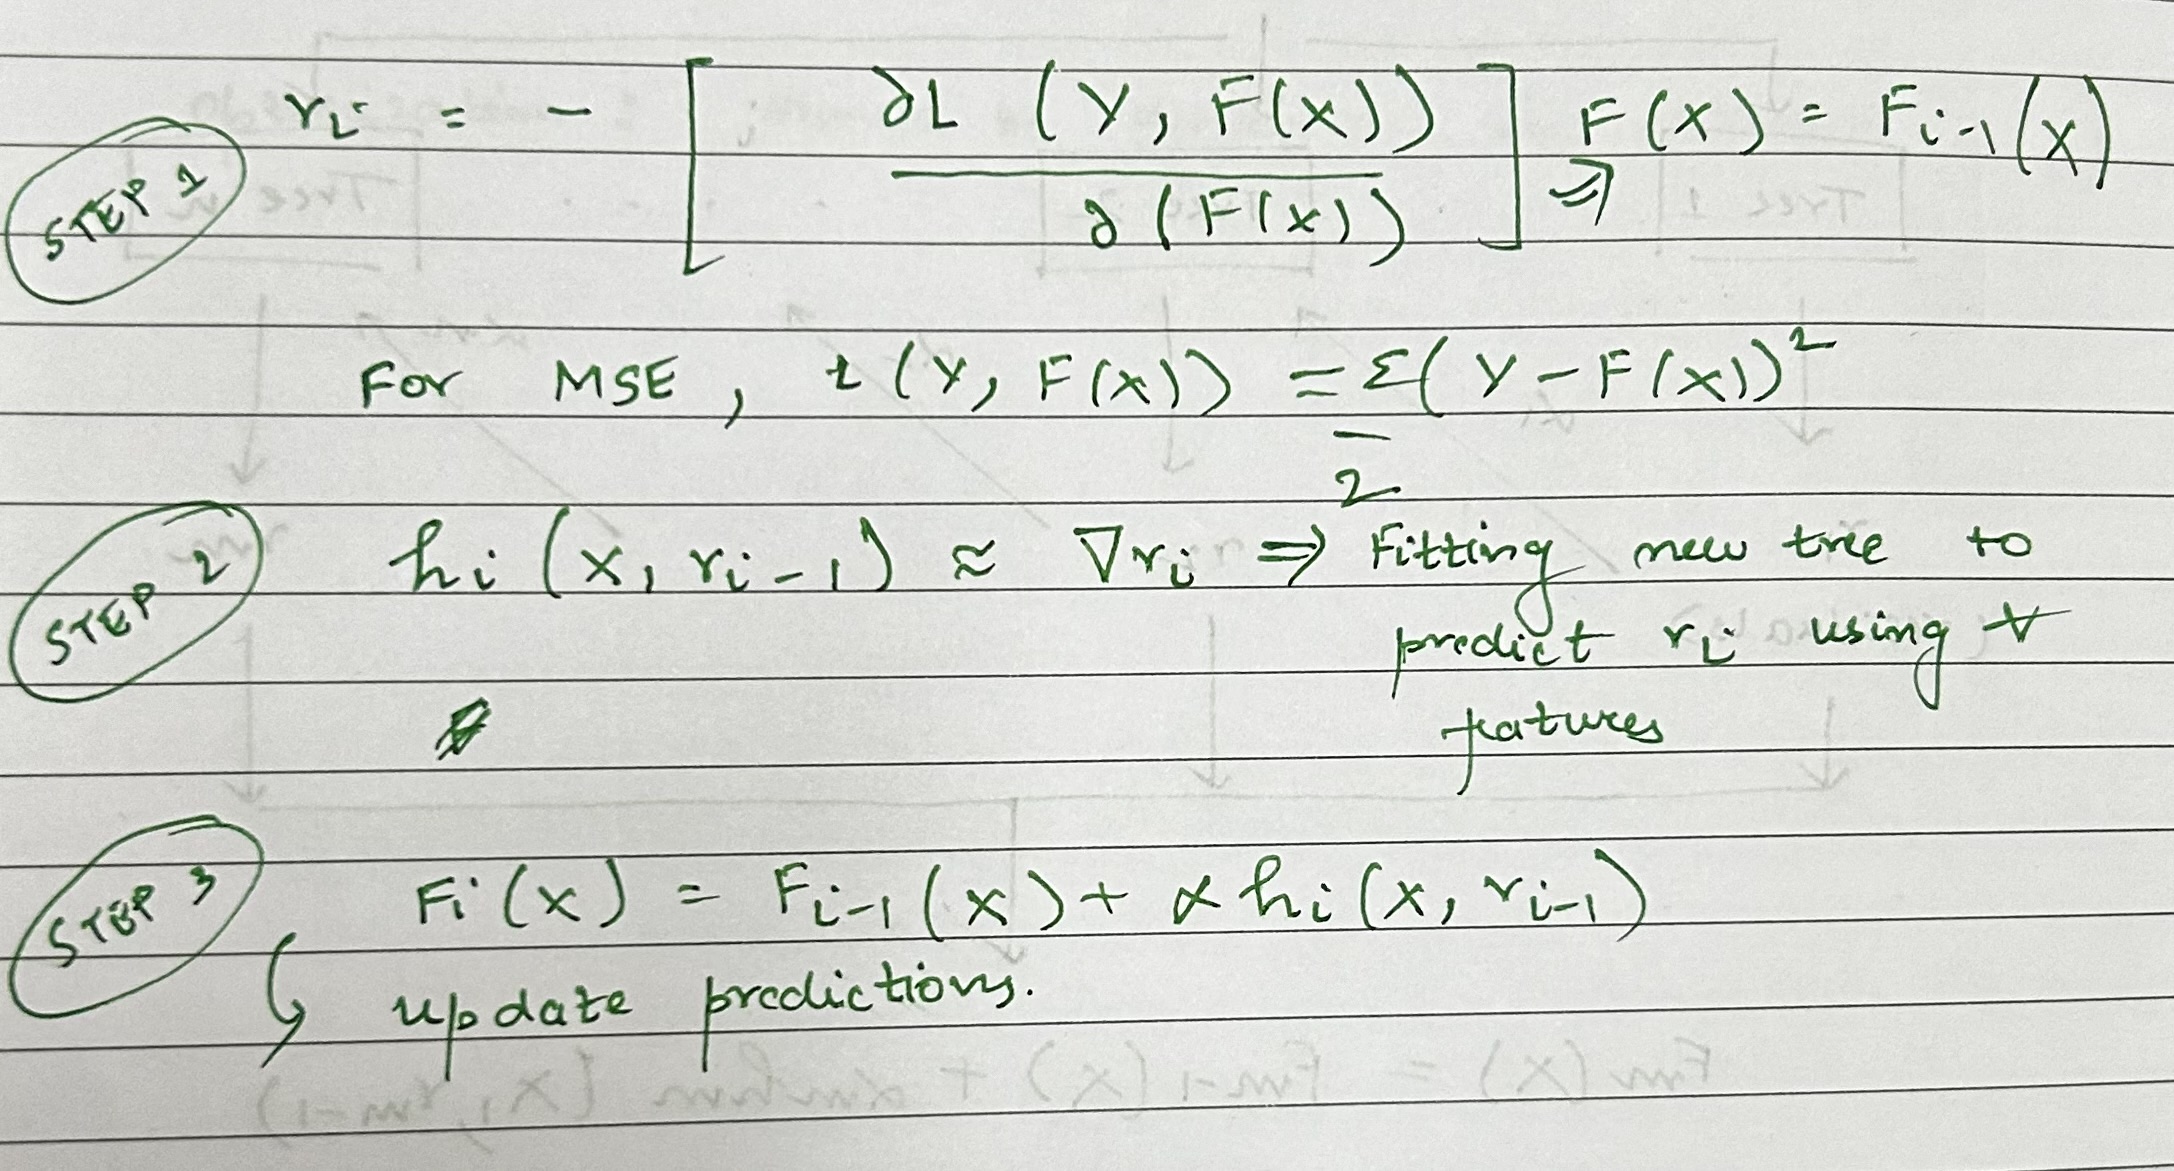 STEP 1
rᵢ = - [ ∂L (Y, F(X)) / ∂(F(X)) ] ⇒ F(X) = Fᵢ₋₁(X)
For MSE, L(Y, F(X)) = Σ(Y - F(X))²
2
STEP 2
hᵢ(X, rᵢ₋₁) ≈ ∇rᵢ ⇒ Fitting new tree to
predict rᵢ using ∀
features
STEP 3
Fᵢ(X) = Fᵢ₋₁(X) + α hᵢ(X, rᵢ₋₁)
update predictions.
Fm(X) = Fm-1(X) + αmhm(X, rm-1)